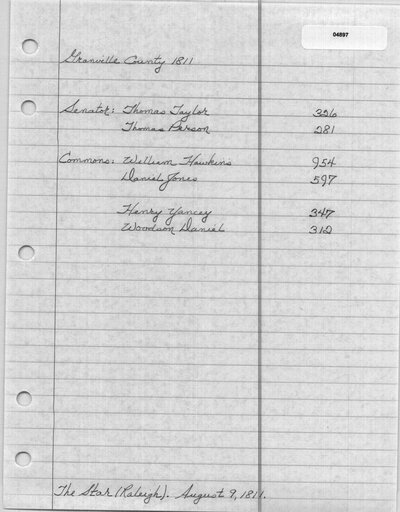 04897
Granville County 1811
Senator: Thomas Taylor 326
Thomas Person 281
Commons: William Hawkins 954
Daniel Jones 597
Henry Yancey 347
Woodson Daniel 312
The Star (Raleigh). August 9, 1811.